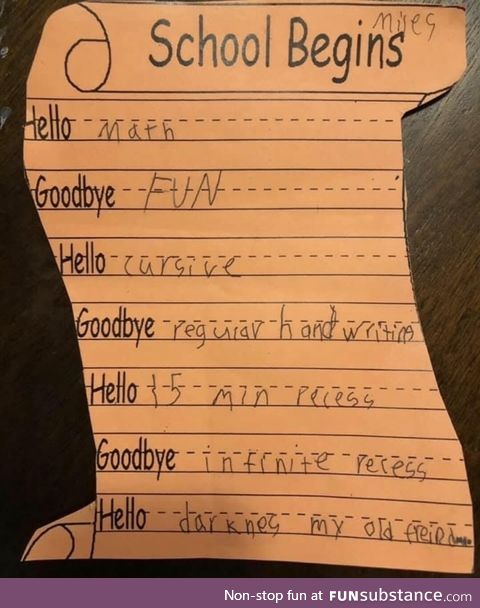 Miles
School Begins
Hello math
Goodbye FUN
Hello cursive
Goodbye regular handwriting
Hello 15 min recess
Goodbye infinite recess
Hello darknes my old freind...
Non-stop fun at FUNsubstance.com